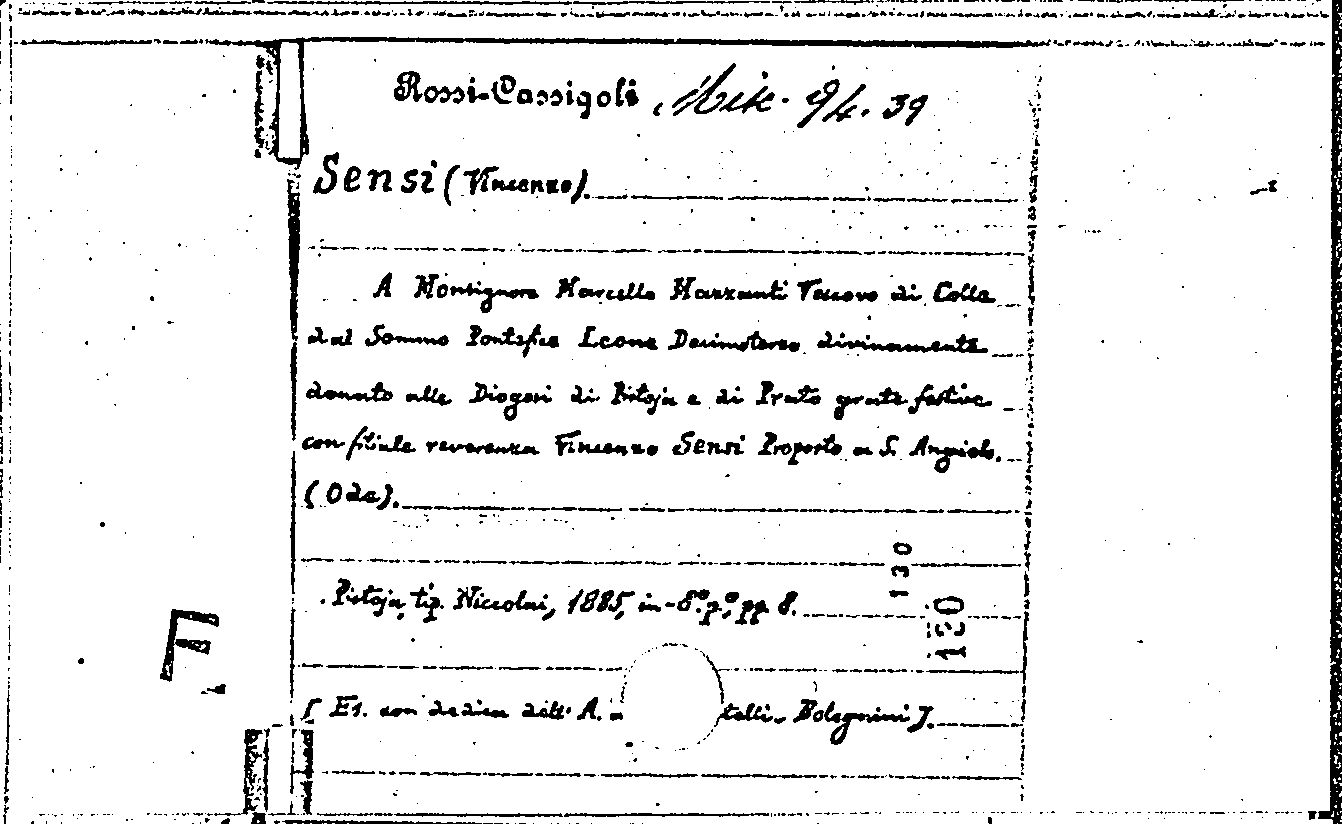 Rossi-Cassigoli, Misc. 9/4. 39
Sensi (Vincenzo).
A Monsignore Marcello Mazzanti Vescovo di Colle
dal Sommo Pontefice Leone Decimoterzo divinamente
donato alle Diogesi di Pistoja e di Prato grate festive
con filiale reverenza Vincenzo Sensi Proposto a S. Angiolo.
(Ode).
130
Pistoja, tip. Niccolai, 1885, in-8.º p.º, pp. 8.
150
[Es. con dedica dell' A. a telli, Bolognini].